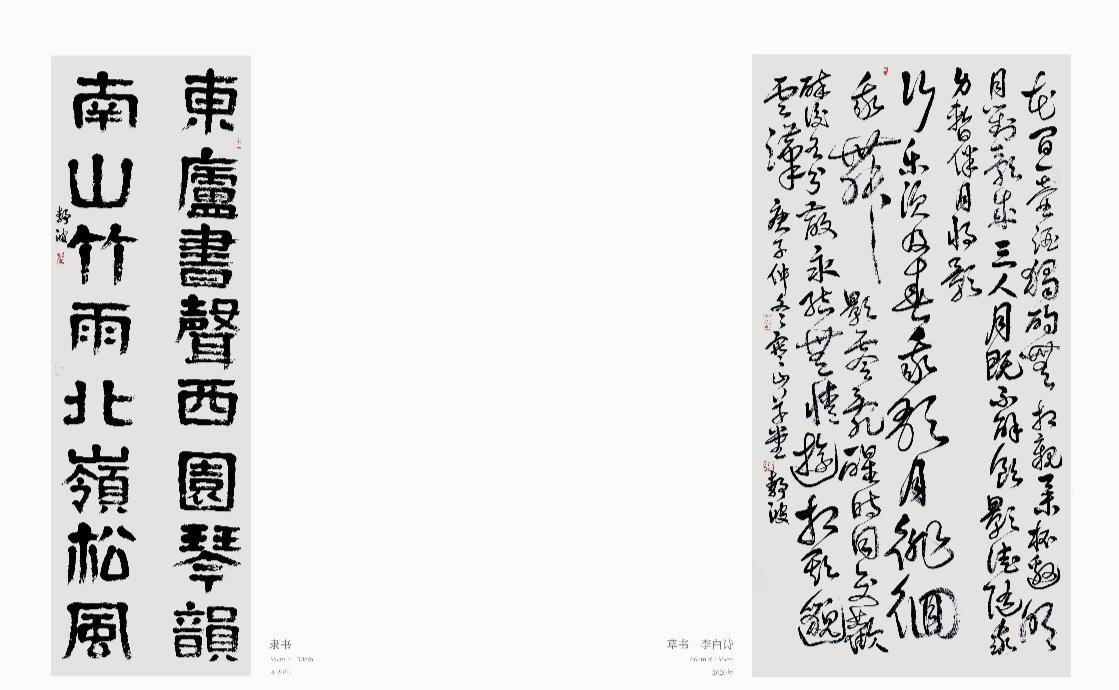 東廬書聲西園琴韻
南山竹雨北嶺松風
靜波
隶书
花間一壺酒獨酌無相親舉杯邀明
月對影成三人月既不解飲影徒隨我
身暫伴月將影
行樂須及春我歌月徘徊
我舞影零亂醒時同交歡
醉後各分散永結無情遊相期邈
雲漢 庚子仲冬 山草堂 靜波
草书 李白诗
2020年